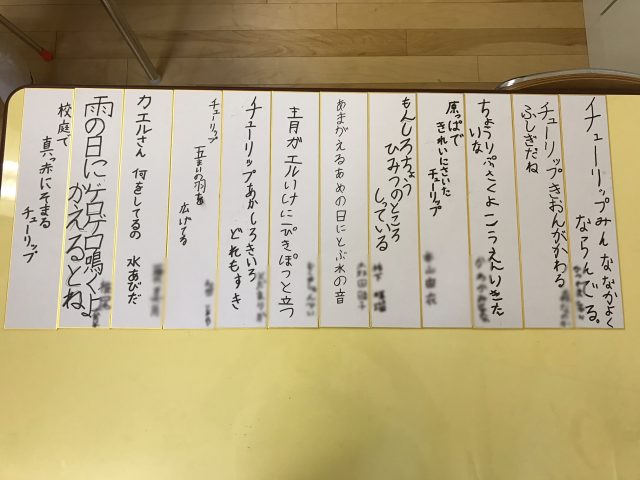 イチューリップみんななかよく
ならんでる。
チューリップきおんがかわる
ふしぎだね
ちょうりっぷさくよこうえんいきた
いな
原っぱで
きれいにさいた
チューリップ
もんしろちょう
ひみつのところ
しっている
あまがえるあめの日にとぶ水の音
青ガエルいけにぴきぽっと立つ
チューリップあかしろきいろ
どれもすき
チューリップ
五まいの羽を
広げてる
カエルさん 何をしてるの 水あびだ
雨の日にゲロゲロ鳴くよ
かえるとね
校庭で
真っ赤にそまる
チューリップ